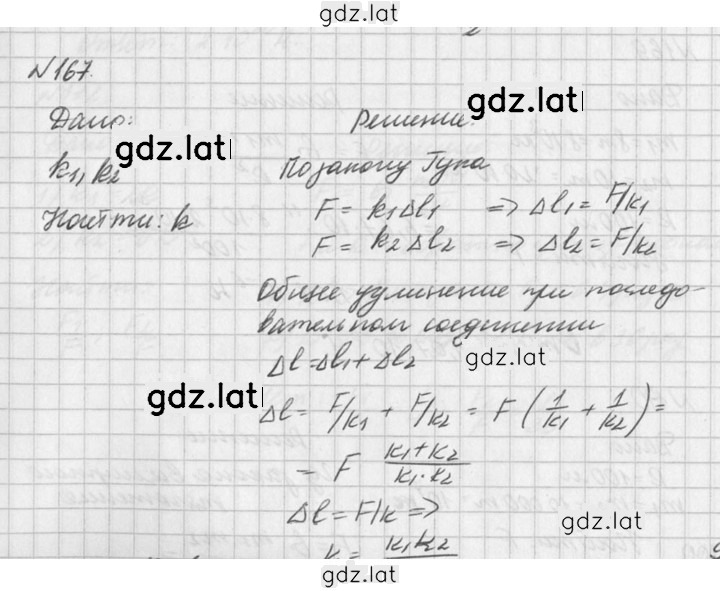 gdz.lat
№167.
Дано: gdz.lat Решение: gdz.lat
k₁, k₂ По закону Гука
Найти: k F = k₁Δl₁ => Δl₁ = F/k₁
F = k₂Δl₂ => Δl₂ = F/k₂
Общее удлинение при последо-
вательном соединении
Δl = Δl₁ + Δl₂ gdz.lat
gdz.lat Δl = F/k₁ + F/k₂ = F (1/k₁ + 1/k₂) =
= F k₁+k₂/k₁·k₂
Δl = F/k => gdz.lat
k = k₁k₂
gdz.lat